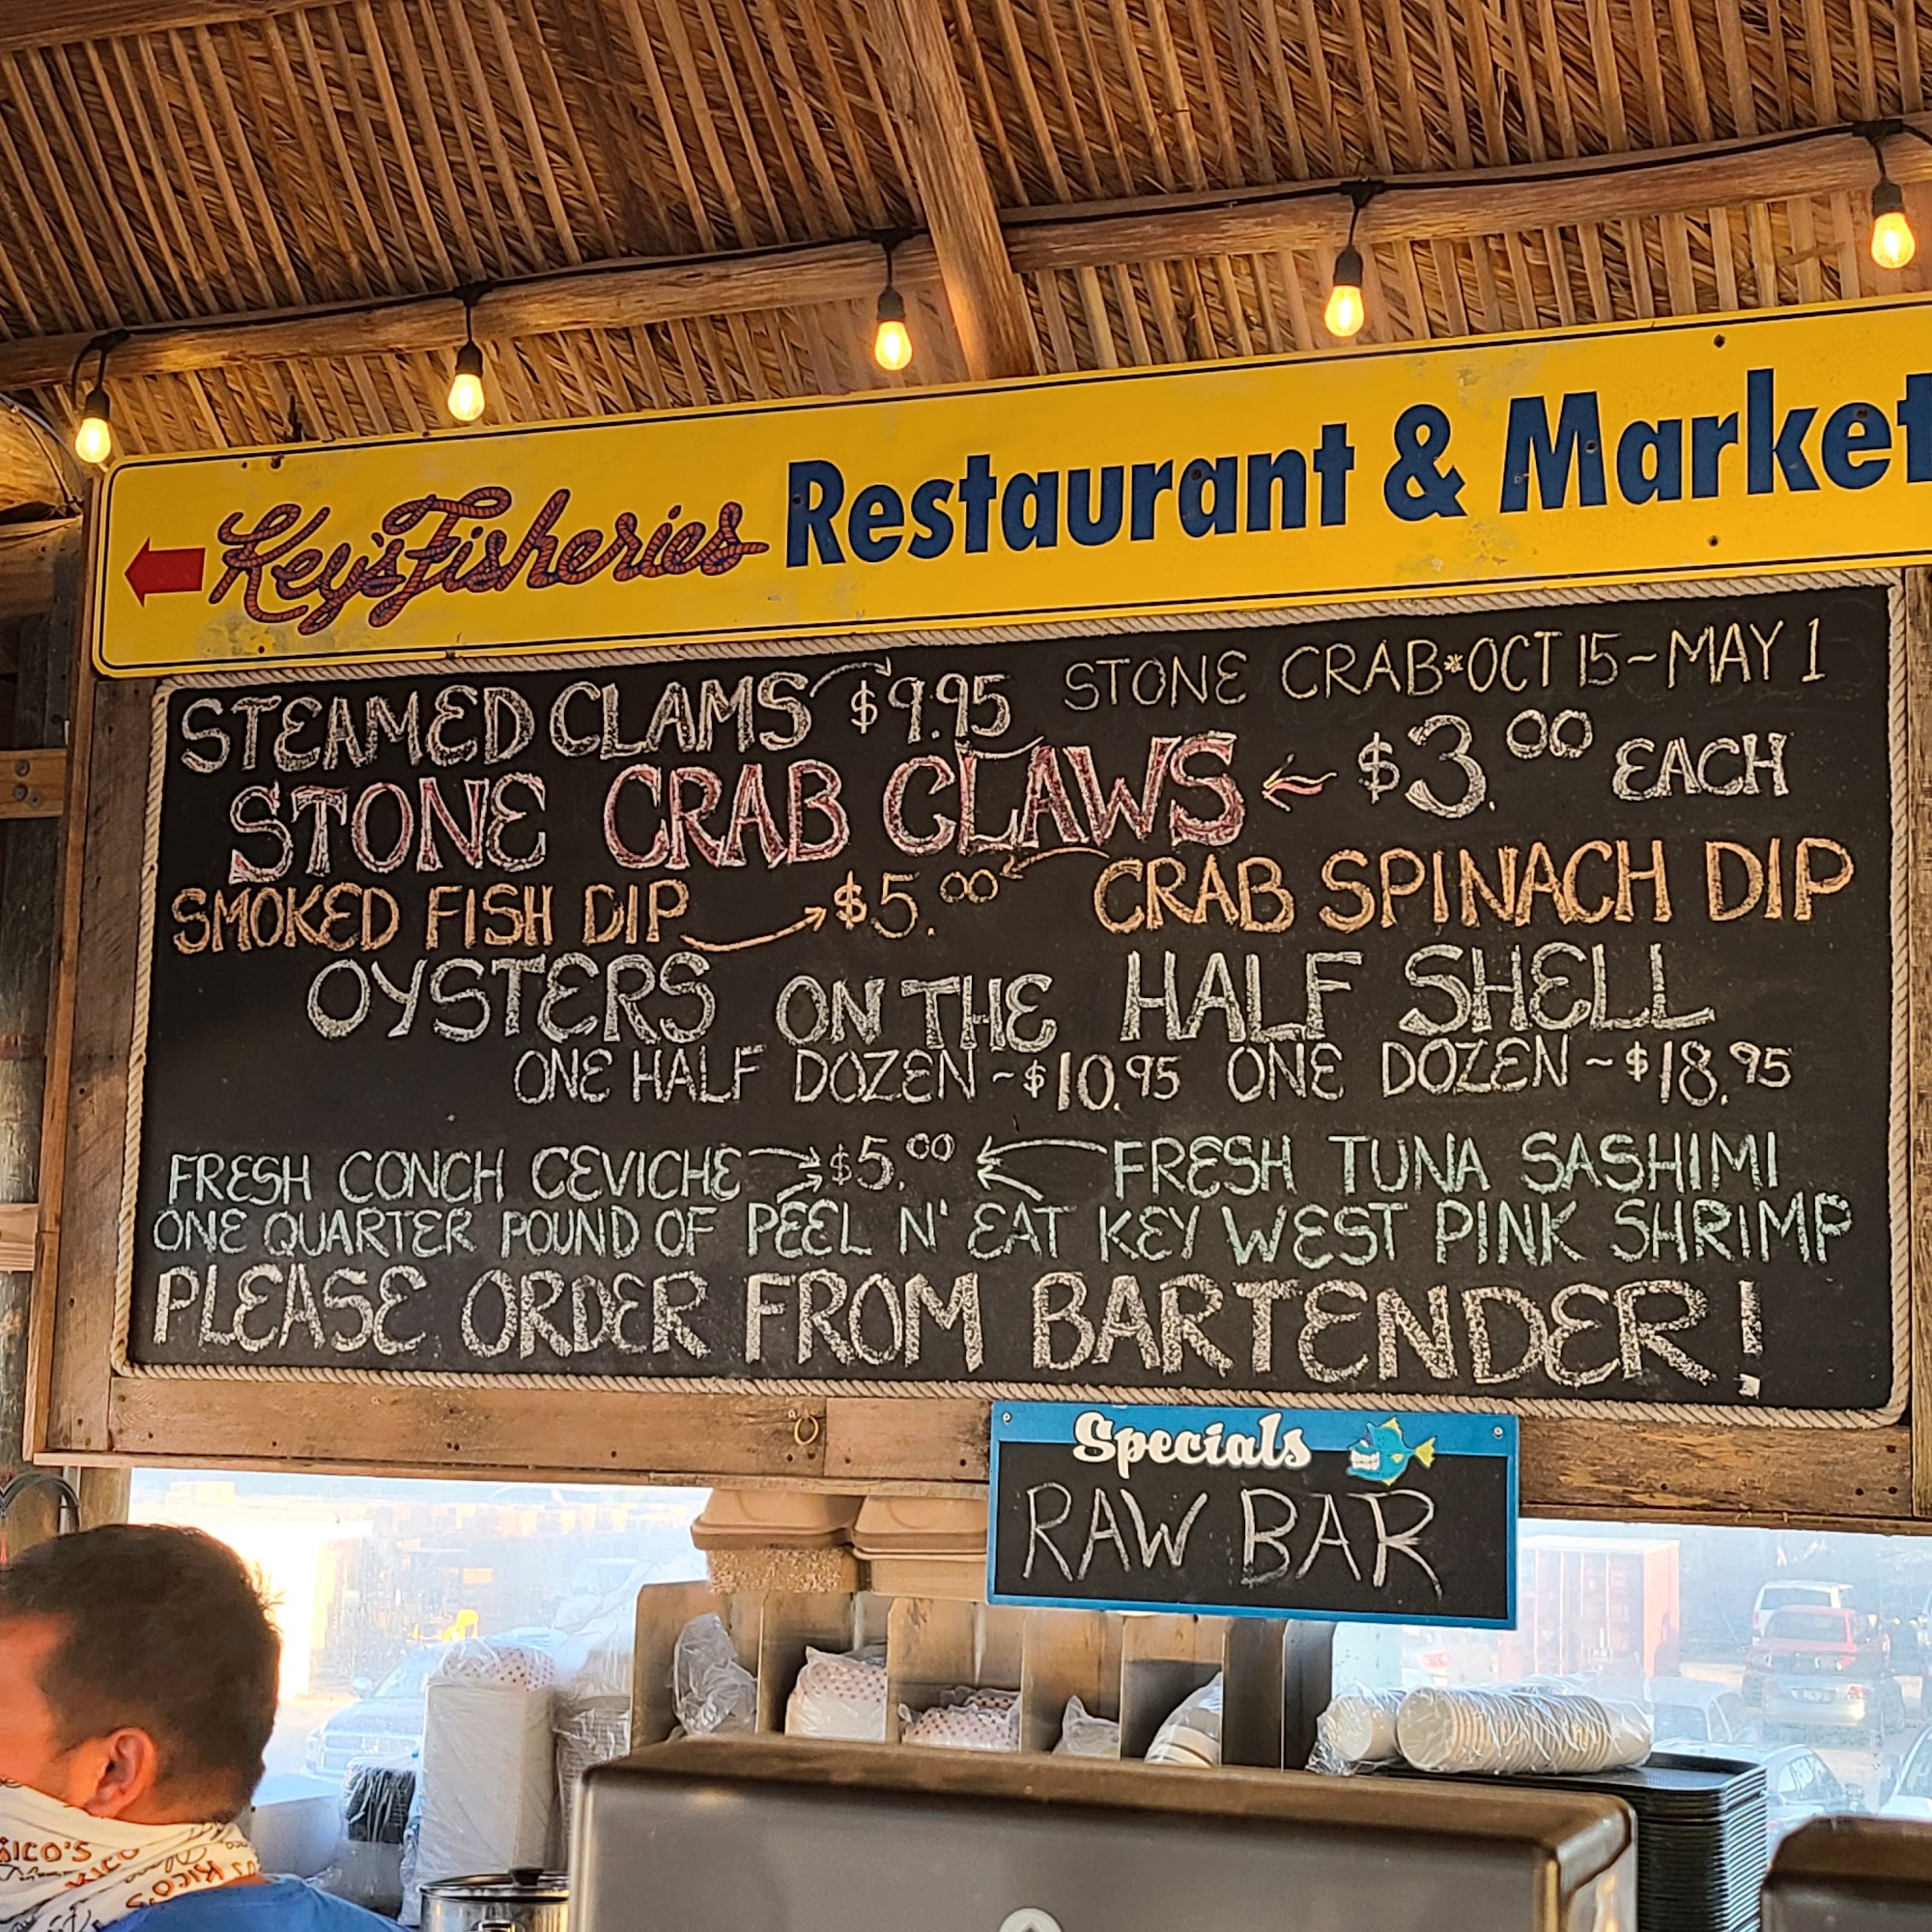 Key's Fisheries Restaurant & Market
STEAMED CLAMS $9.95 STONE CRAB*OCT 15~MAY 1
STONE CRAB CLAWS ← $3.00 EACH
SMOKED FISH DIP → $5.00 ← CRAB SPINACH DIP
OYSTERS ON THE HALF SHELL
ONE HALF DOZEN ~ $10.95 ONE DOZEN ~ $18.95
FRESH CONCH CEVICHE → $5.00 ← FRESH TUNA SASHIMI
ONE QUARTER POUND OF PEEL N' EAT KEY WEST PINK SHRIMP
PLEASE ORDER FROM BARTENDER!
Specials
RAW BAR
RICO'S